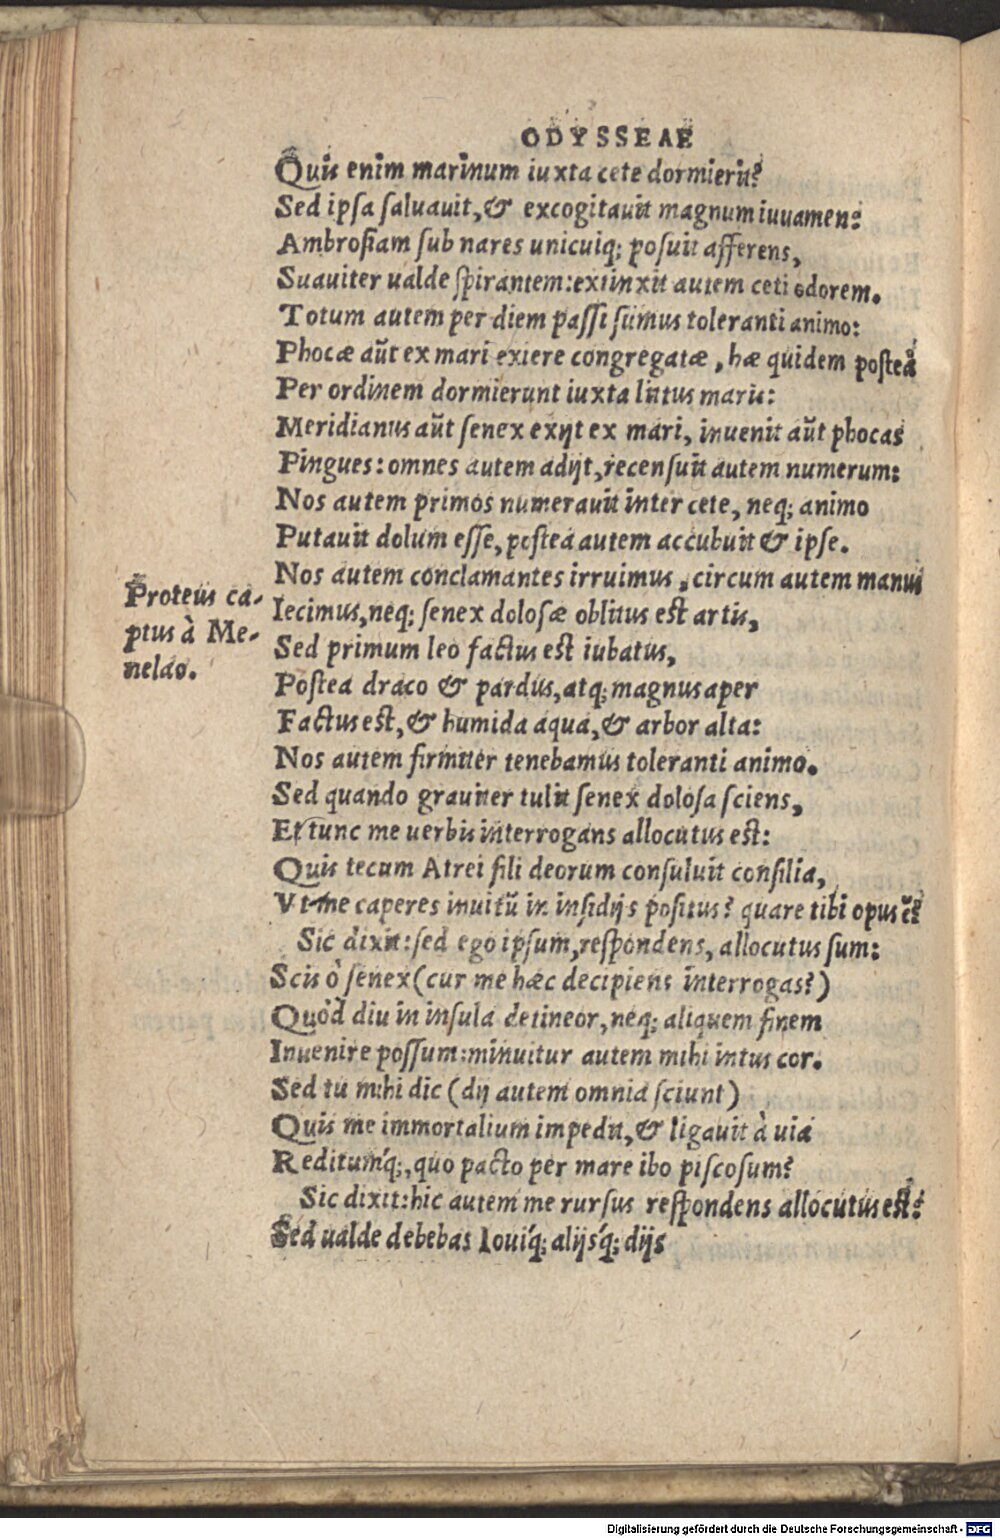 ODYSSEAE
Quis enim marinum iuxta cete dormierit?
Sed ipſa ſaluauit, & excogitauit magnum iuuamen:
Ambroſiam ſub nares unicuiq; poſuit afferens,
Suauiter ualde ſpirantem: extinxit autem ceti odorem.
Totum autem per diem paſſi ſumus toleranti animo:
Phocæ aũt ex mari exiere congregatæ, hæ quidem poſteà
Per ordinem dormierunt iuxta littus maris:
Meridianus aũt ſenex exijt ex mari, inuenit aũt phocas
Pingues: omnes autem adijt, recenſuit autem numerum:
Nos autem primos numerauit inter cete, neq; animo
Putauit dolum eſſe, poſtea autem accubuit & ipſe.
Nos autem conclamantes irruimus, circum autem manus
Proteus captus à Menelao.
Iecimus, neq; ſenex doloſæ oblitus eſt artis,
Sed primum leo factus eſt iubatus,
Poſtea draco & pardus, atq; magnus aper
Factus eſt, & humida aqua, & arbor alta:
Nos autem firmiter tenebamus toleranti animo.
Sed quando grauiter tulit ſenex doloſa ſciens,
Et tunc me uerbis interrogans allocutus eſt:
Quis tecum Atrei fili deorum conſuluit conſilia,
Vt me caperes inuitũ in inſidijs poſitus? quare tibi opus ẽ?
Sic dixit: ſed ego ipſum, reſpondens, allocutus ſum:
Scis ò ſenex (cur me hæc decipiens interrogas?)
Quòd diu in inſula detineor, neq; aliquem finem
Inuenire poſſum: minuitur autem mihi intus cor.
Sed tu mihi dic (dij autem omnia ſciunt)
Quis me immortalium impedit, & ligauit à uia
Reditumq́;, quo pacto per mare ibo piſcoſum?
Sic dixit: hic autem me rurſus reſpondens allocutus eſt:
Sed ualde debebas Iouiq́; alijsq́; dijs
Digitalisierung gefördert durch die Deutsche Forschungsgemeinschaft - DFG